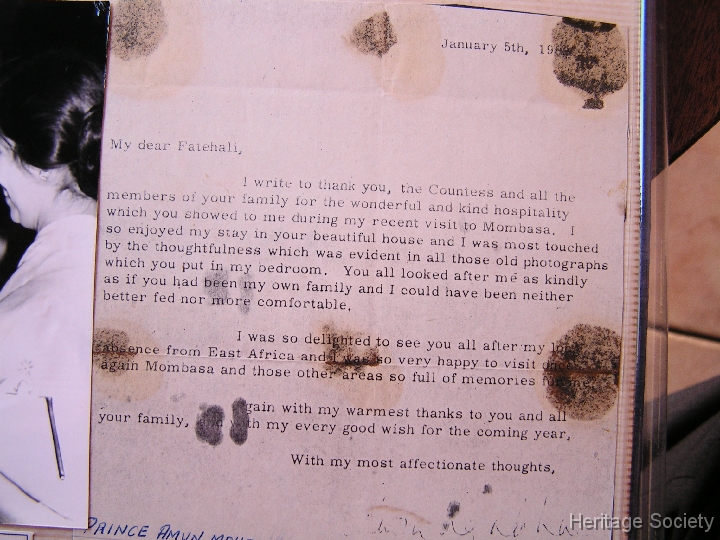 January 5th,
My dear Fatehali,
I write to thank you, the Countess and all the
members of your family for the wonderful and kind hospitality
which you showed to me during my recent visit to Mombasa. I
so enjoyed my stay in your beautiful house and I was most touched
by the thoughtfulness which was evident in all those old photographs
which you put in my bedroom. You all looked after me as kindly
as if you had been my own family and I could have been neither
better fed nor more comfortable.
I was so delighted to see you all after my long
absence from East Africa and I was so very happy to visit once
again Mombasa and those other areas so full of memories for me.
Again with my warmest thanks to you and all
your family, and with my every good wish for the coming year,
With my most affectionate thoughts,
PRINCE AMYN
Heritage Society